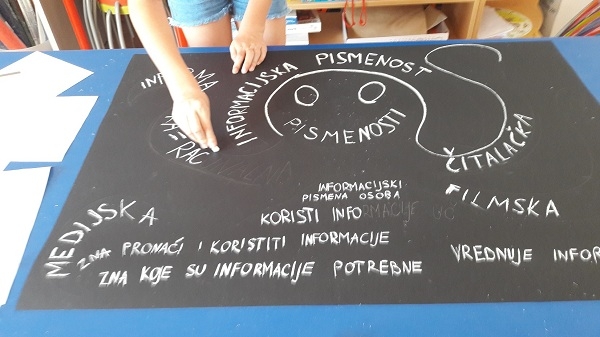 INFORMA
RAC
INFORMACIJSKA PISMENOST
PISMENOSTI
ČITALAČKA
FILMSKA
MEDIJSKA
INFORMACIJSKI
PISMENA OSOBA
KORISTI INFORMACIJE
ZNA PRONAĆI I KORISTITI INFORMACIJE
ZNA KOJE SU INFORMACIJE POTREBNE
VREDNUJE INFOR